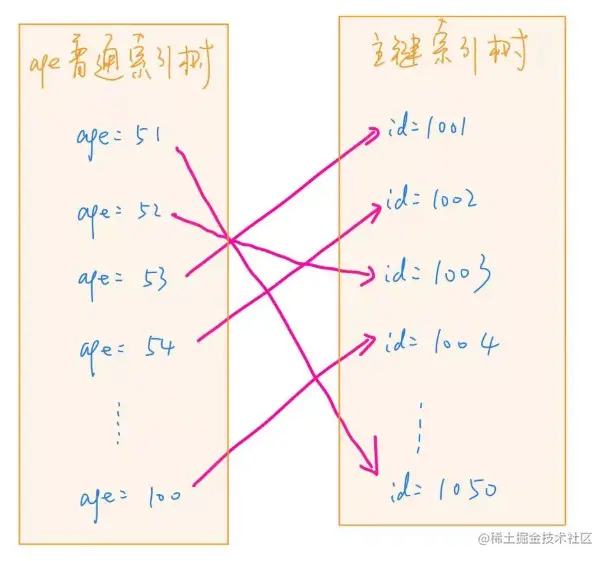 age普通索引树
age = 51
age = 52
age = 53
age = 54
age = 100
主键索引树
id=1001
id=1002
id=1003
id=1004
id=1050
@稀土掘金技术社区